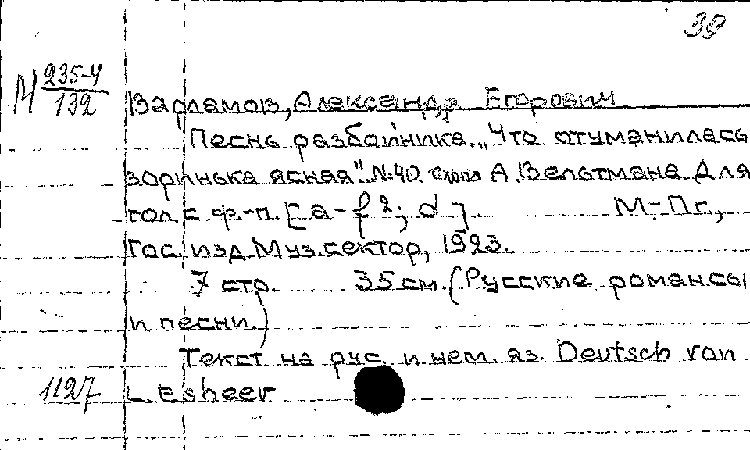 38
М 235-4
132
Варламов, Александр Егорович
Песнь разбойника. „Что отуманилась
зоринька ясная" N.40. слова А. Вельтмана. Для
гол с ф.-п. [a-f2; d]. М.-Пг.,
Гос. изд. Муз. сектор, 1923.
7 стр. 35 см. (Русские романсы
и песни.)
Текст на рус. и нем. яз. Deutsch von
1127 L. Esheer